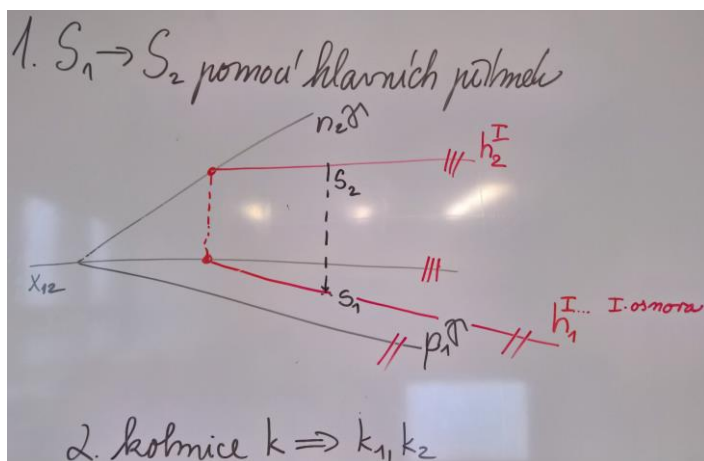 1. S₁ → S₂ pomocí hlavních přímek
n₂ᵞ
h₂ᴵ
S₂
x₁₂
S₁
h₁ᴵ... I. osnova
p₁ᵞ
2. kolmice k ⟹ k₁, k₂